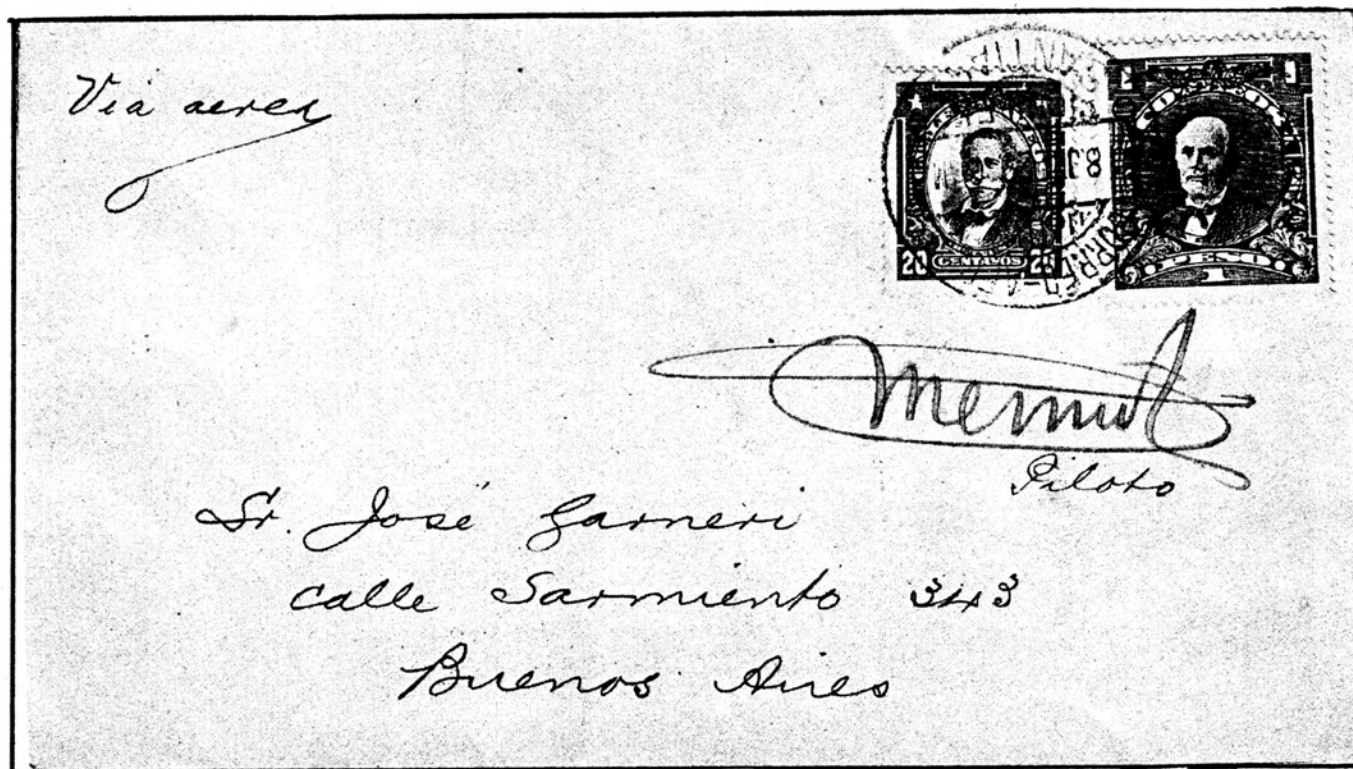 Via aerea
CORREOS
20 CENTAVOS 20
1 PESO 1
Mermoz
Piloto
Sr. José Garneri
calle Sarmiento 343
Buenos Aires